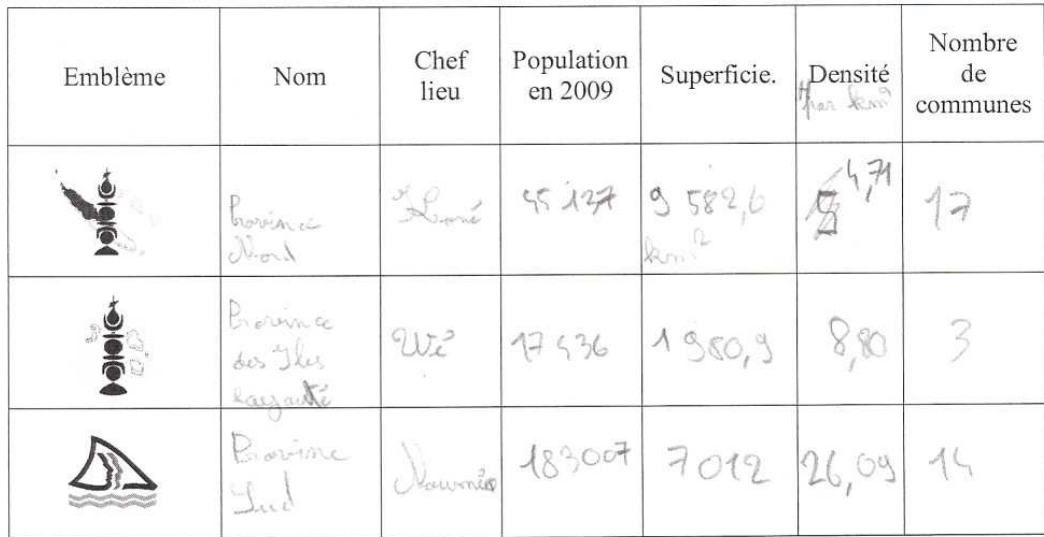 Emblème
Nom
Chef
lieu
Population
en 2009
Superficie.
Densité
H par km²
Nombre
de
communes
Province
Nord
Koné
45 137
9 582,6
km²
4,71
17
Province
des Iles
Loyauté
Wé
17 436
1 980,9
8,80
3
Province
Sud
Nouméa
183007
7012
26,09
14